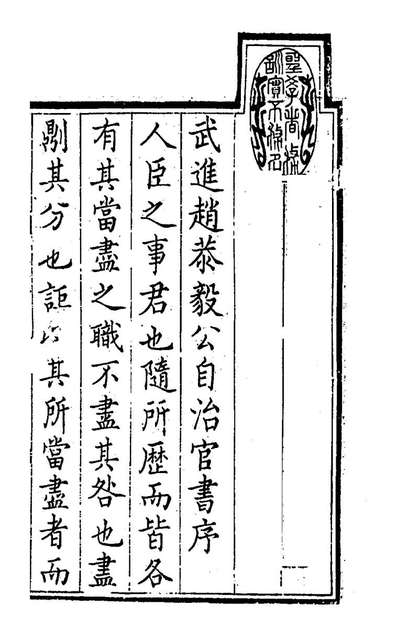 武進趙恭毅公自治官書序
人臣之事君也隨所歷而皆各
有其當盡之職不盡其咎也盡
其分也詎其所當盡者而